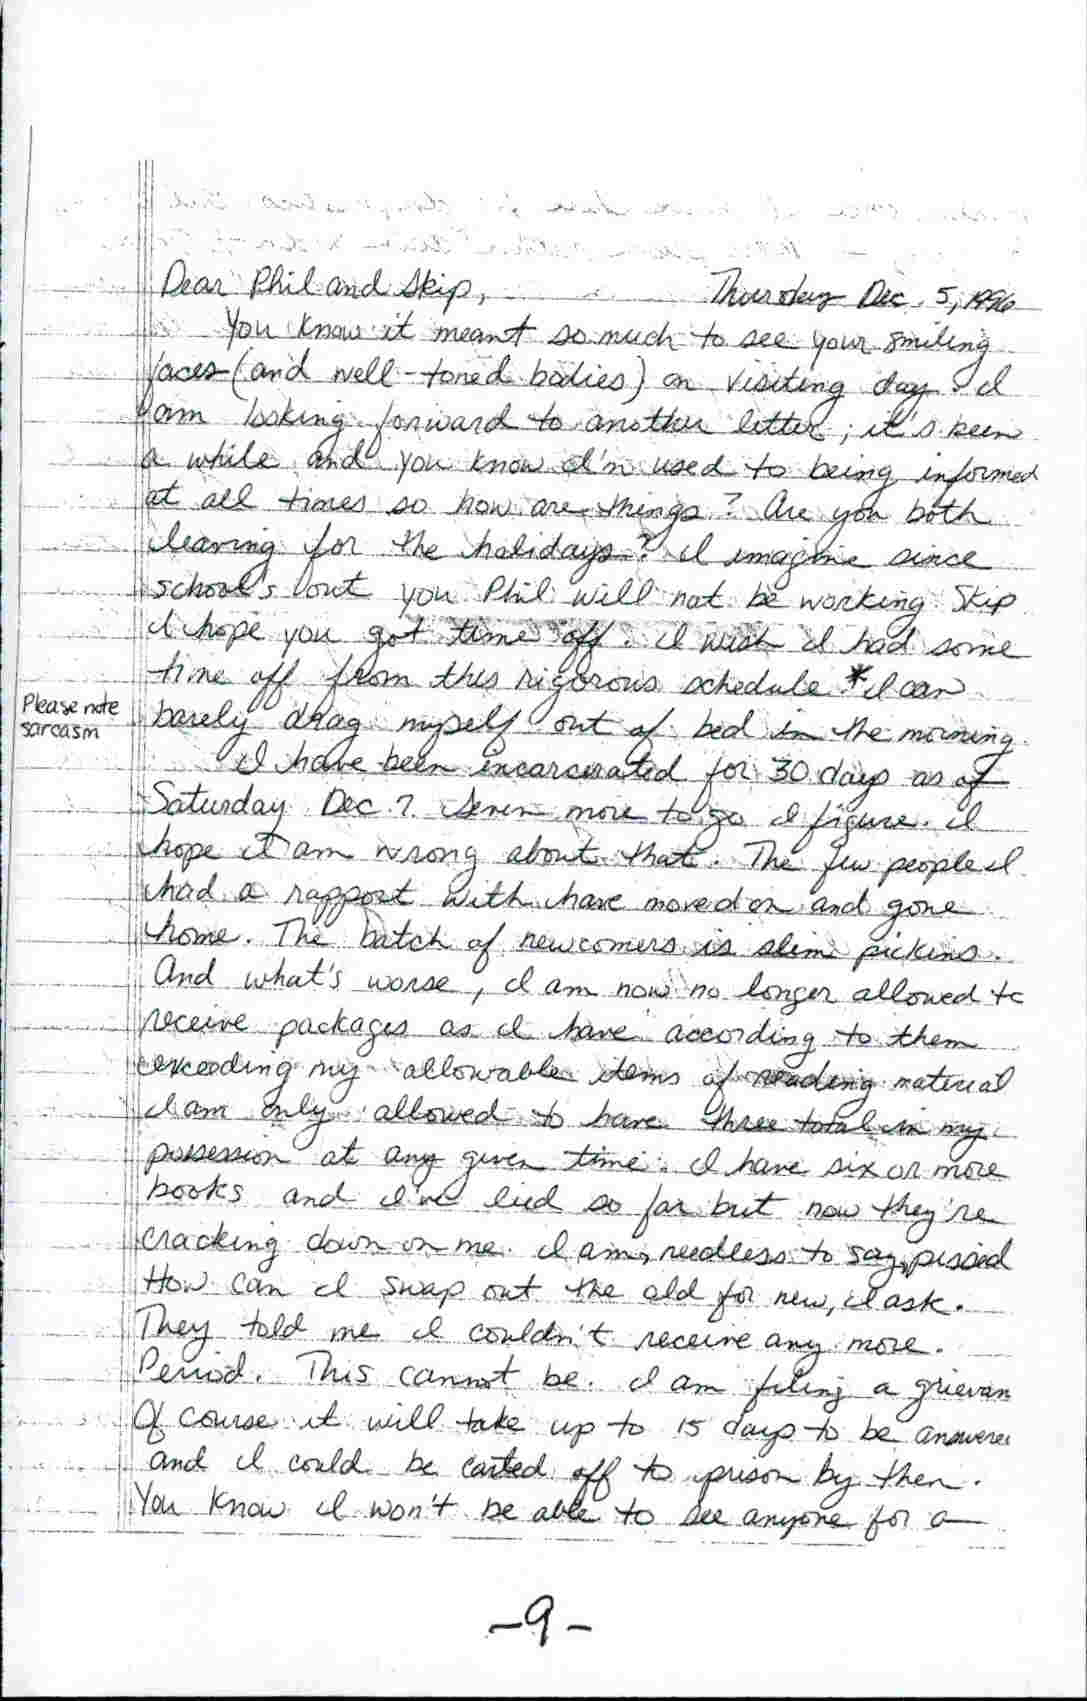 Dear Phil and Skip, Thursday Dec. 5, 1996
You know it meant so much to see your smiling
faces (and well-toned bodies) on visiting day. I
am looking forward to another letter; it's been
a while and you know I'm used to being informed
at all times so how are things? Are you both
leaving for the holidays? I imagine since
school's out you Phil will not be working. Skip
I hope you got time off. I wish I had some
time off from this rigorous schedule * I can
Please note
sarcasm
barely drag myself out of bed in the morning.
I have been incarcerated for 30 days as of
Saturday Dec 7. Seven more to go I figure. I
hope I am wrong about that. The few people I
had a rapport with have moved on and gone
home. The batch of newcomers is slim pickins.
And what's worse, I am now no longer allowed to
receive packages as I have according to them
exceeding my allowable items of reading material
I am only allowed to have three total in my
possession at any given time. I have six or more
books and I've lied so far but now they're
cracking down on me. I am, needless to say, pissed
How can I swap out the old for new, I ask.
They told me I couldn't receive any more.
Period. This cannot be. I am filing a grievan
Of course it will take up to 15 days to be answere
and I could be carted off to prison by then.
You know I won't be able to see anyone for a
-9-